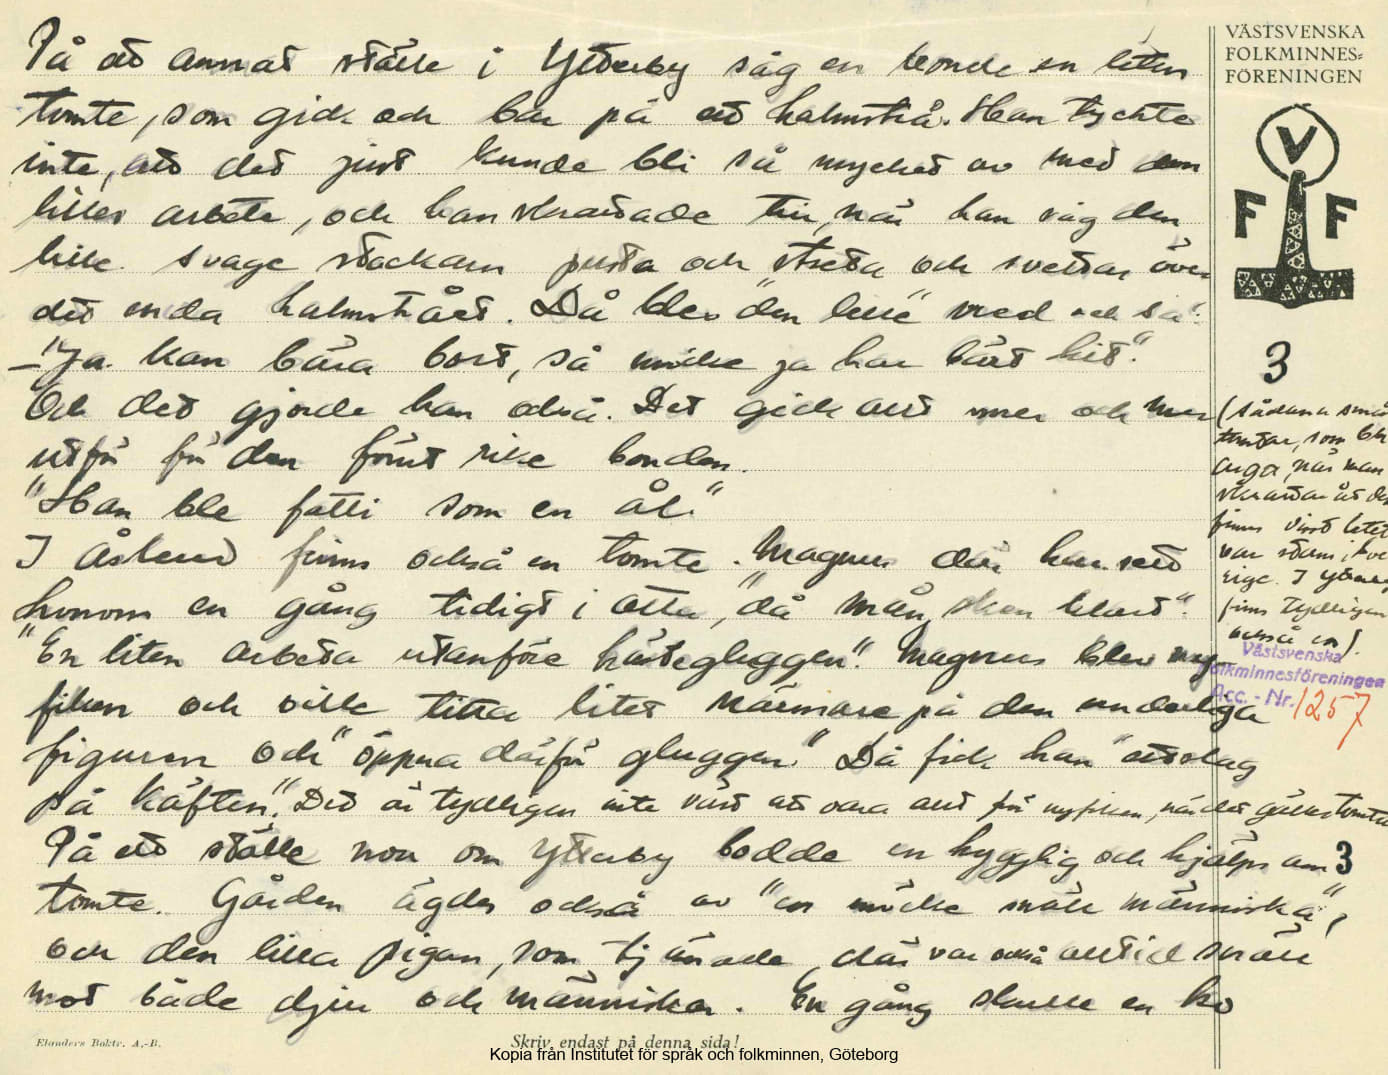 På ett annat ställe i Ytterby såg en bonde en liten
tomte, som gick och bar på ett halmstrå. Han tyckte
inte, att det just kunde bli så mycket av med den
lilles arbete, och han skrattade till, när han såg den
lille svage stackarn pusta och streta och svettas över
det enda halmstrået. Då blev "den lille" vred och sa:
– "Ja kan bära bort, så möcke ja har bärt hit."
Och det gjorde han också. Det gick allt mer och mer
utför för den förut rike bonden.
"Han ble fatti som en ål."
I Åslund finns också en tomte. Magnus där har sett
honom en gång tidigt i otta, "då mån sken klart".
"En liten arbeta utanföre hästegluggen". Magnus blev ny-
fiken och ville titta litet närmare på den underliga
figuren och "öppna därför gluggen." Då fick han "ett slag
på käften". Det är tydligen inte värt att vara allt för nyfiken, när det gäller tomtar
På ett ställe norr om Ytterby bodde en hygglig och hjälpsam
tomte. Gården ägdes också av "en möcke snäll människa",
och den lilla pigan, som tjänade där var också alltid snäll
mot både djur och människor. En gång skulle en ko
VÄSTSVENSKA
FOLKMINNES=
FÖRENINGEN
V
F F
3
(Sådana små
tomtar, som bli
arga, när man
skrattar åt de
finns visst litet
var stans i Sve
rige. I Ytterby
finns tydligen
också en).
Västsvenska
Folkminnesföreningen
Acc. - Nr. 1257
3
Elanders Boktr. A.-B.
Skriv endast på denna sida!
Kopia från Institutet för språk och folkminnen, Göteborg